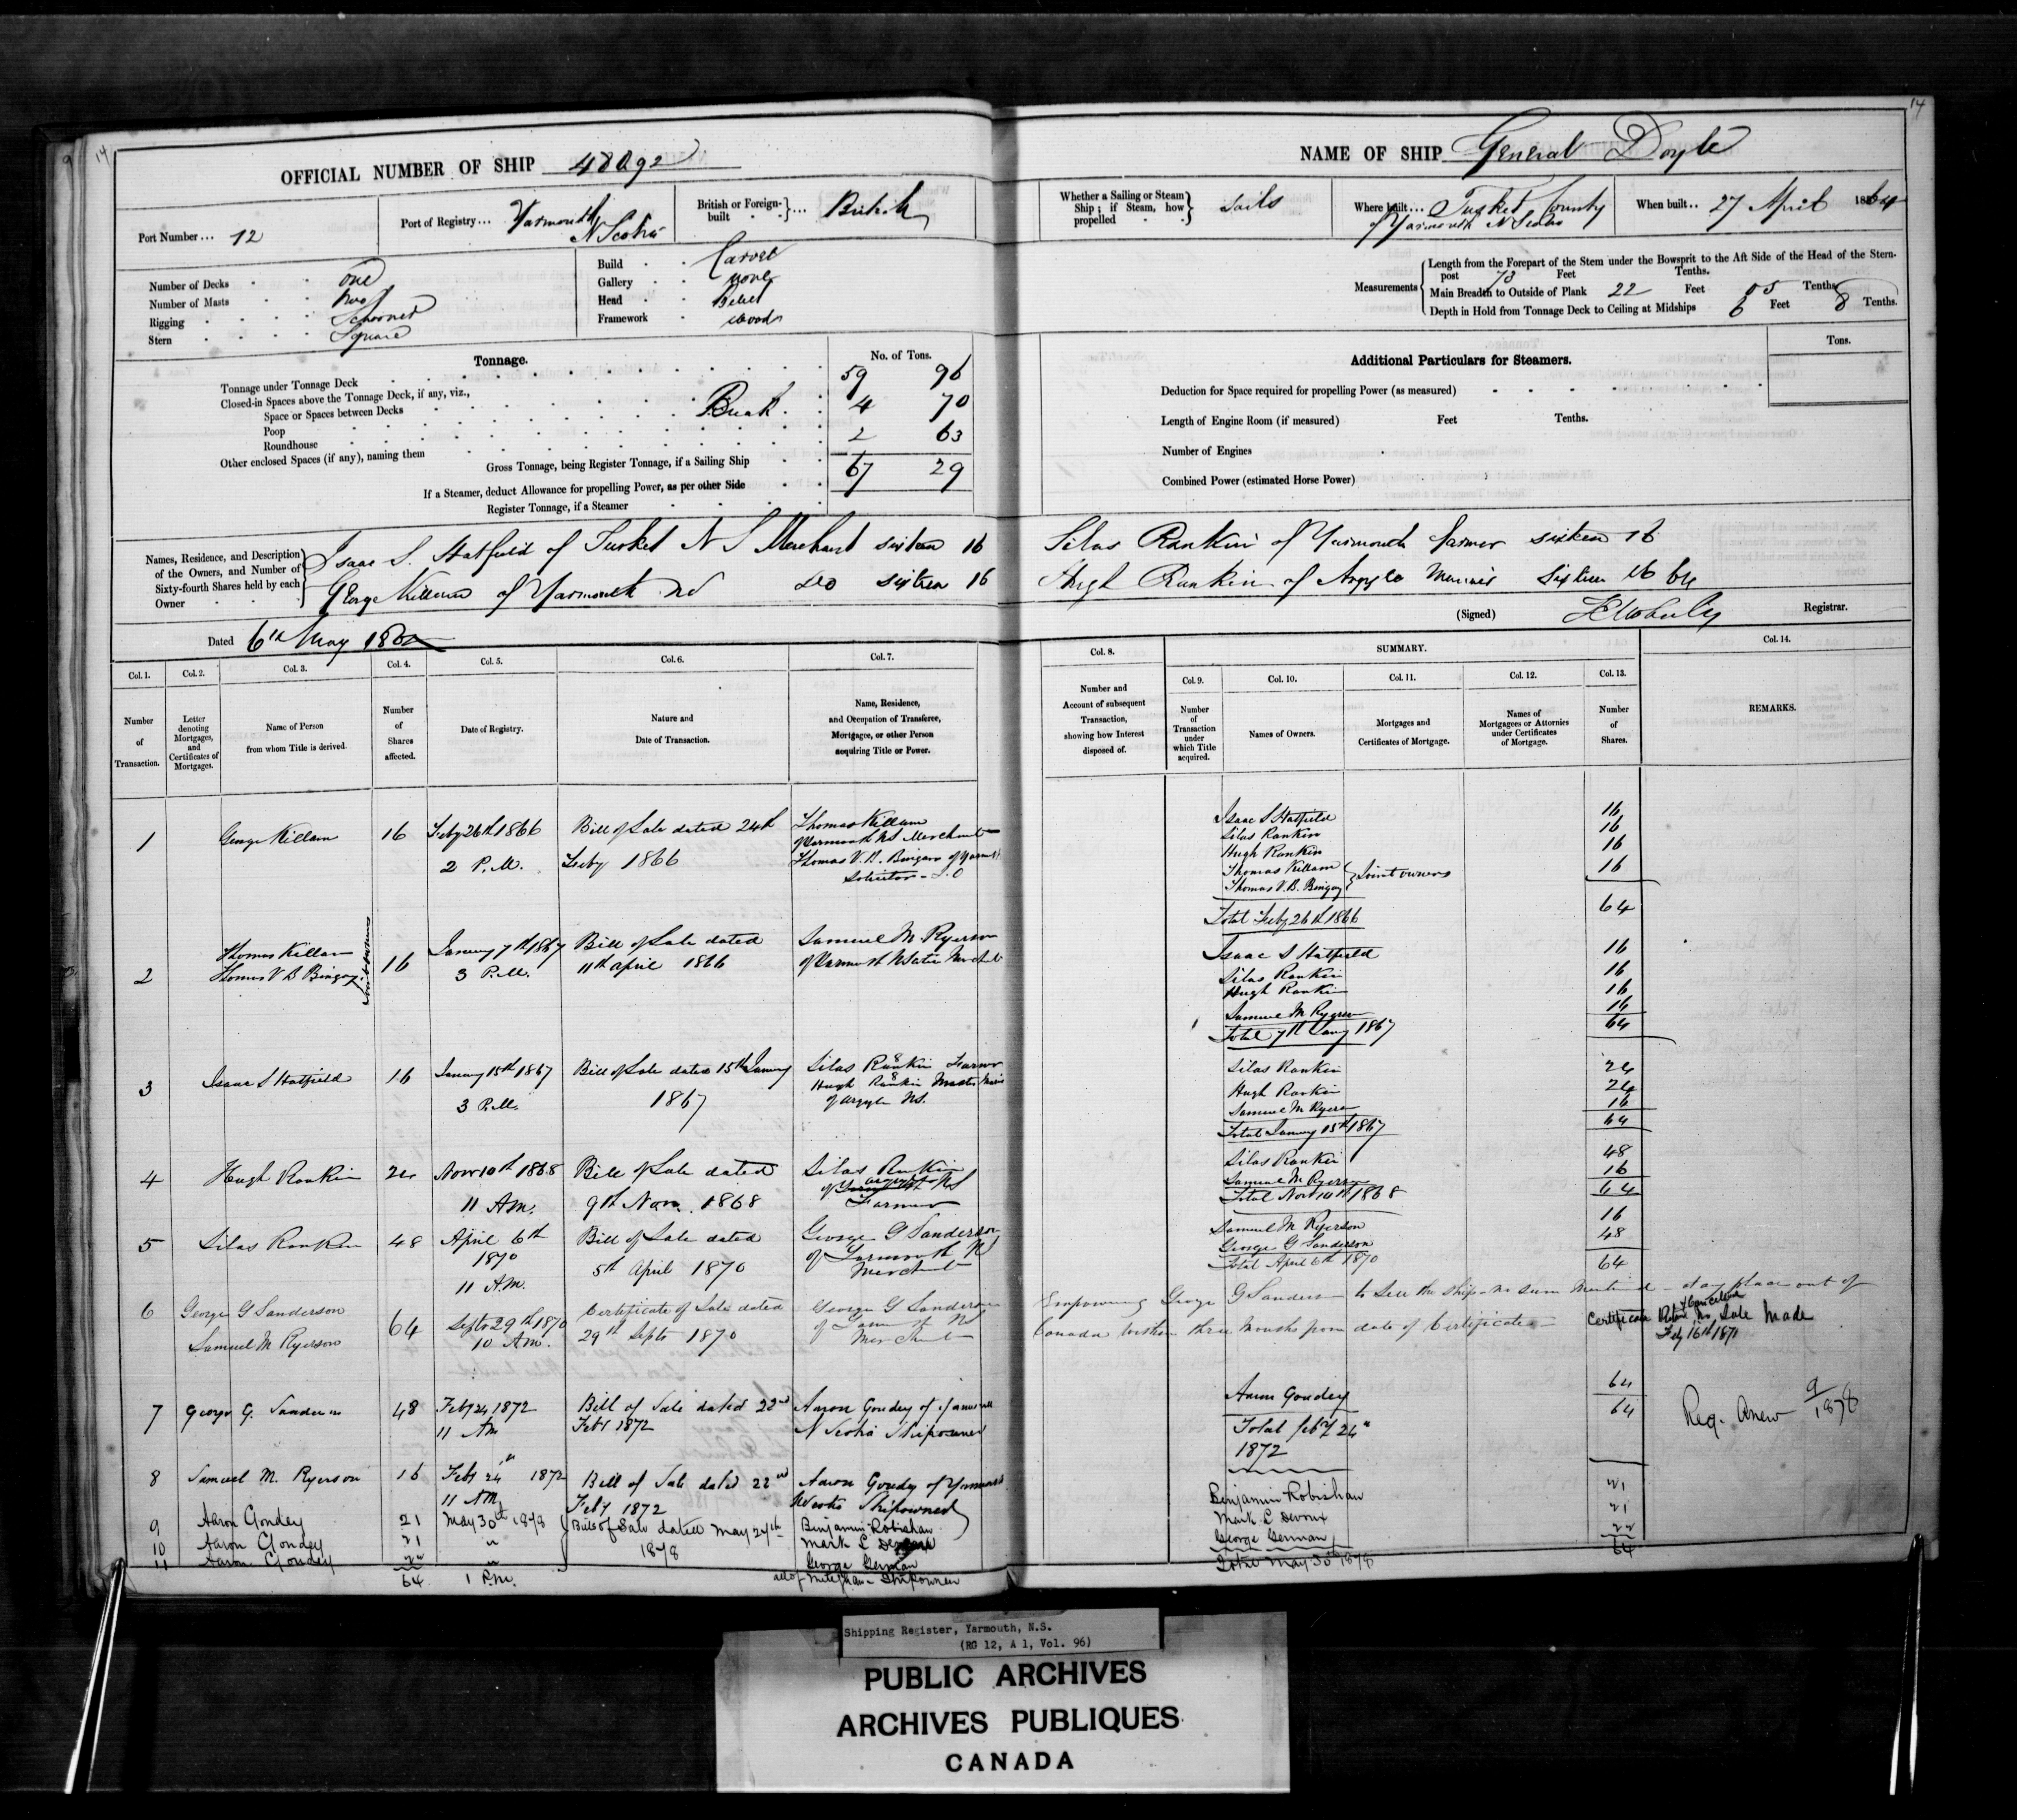 14
OFFICIAL NUMBER OF SHIP
Port Number ... 12
Port of Registry ... Yarmouth
N Scotia
British or Foreign-built ... British
Number of Decks One
Number of Masts two
Rigging Schooner
Stern Square
Build Carvel
Gallery none
Head
Framework Wood
Tonnage.
No. of Tons.
Tonnage under Tonnage Deck 59 96
Closed-in Spaces above the Tonnage Deck, if any, viz.,
Space or Spaces between Decks 4 70
Poop
Roundhouse 2 63
Other enclosed Spaces (if any), naming them
Gross Tonnage, being Register Tonnage, if a Sailing Ship 67 29
If a Steamer, deduct Allowance for propelling Power, as per other Side
Register Tonnage, if a Steamer
Names, Residence, and Description of the Owners, and Number of Sixty-fourth Shares held by each Owner
Isaac S. Hatfield of Tusket N S Merchant sixteen 16
George Killam of Yarmouth Do sixteen 16
Dated 6th May
Col. 1. Col. 2. Col. 3. Col. 4. Col. 5. Col. 6. Col. 7.
Number of Transaction.
Letter denoting Mortgages, and Certificates of Mortgages.
Name of Person from whom Title is derived.
Number of Shares affected.
Date of Registry.
Nature and Date of Transaction.
Name, Residence, and Occupation of Transferee, Mortgagee, or other Person acquiring Title or Power.
1 George Killam 16 Feby 26th 1866 Bill of Sale dated 24th Thomas Killam
of Yarmouth NS Merchant
2 P.M. Feby 1866 Thomas V. B. Bingay of Yarmouth
Solicitor - J.O
Thomas Killam January 7th 1867 Bill of Sale dated Samuel M. Ryerson
2 Thomas V B Bingay Joint Owners 16 3 P.M. 11th April 1866
3 Isaac S Hatfield 16 January 15th 1867 Bill of Sale dated 15th January Silas Rankin 8 Farmer
Hugh Rankin 8 Master
3 P.M. 1867 of Argyle NS.
4 Hugh Rankin 24 Novr 10th 1868 Bill of Sale dated Silas Rankin
of Argyle NS
11 A.M. 9th Nov. 1868 Farmer
5 Silas Rankin 48 April 6th Bill of Sale dated George G Sanderson
1870 5th April 1870 of Yarmouth NS
11 A.M. Merchant
6 George G Sanderson Certificate of Sale dated George G Sanderson
64 Septr 29th 1870 29th Septr 1870 of Yarmouth NS
Samuel M Ryerson 10 A.M. Merchant
7 George G. Sanderson 48 Feby 24 1872 Bill of Sale dated 22nd Aaron Goudey of Yarmouth
11 AM Feby 1872 N Scotia Shipowner
8 Samuel M. Ryerson 16 Feby 24th 1872 Bill of Sale dated 22nd Aaron Goudey of Yarmouth
11 AM Feby 1872 N Scotia Shipowner
9 Aaron Goudey 21 May 30th 1878 Bills of Sale dated May 27th Benjamin Robishau
10 Aaron Goudey 21 " 1878 Mark L Devoux
11 Aaron Goudey 22 " George German
64 1 P.M. all of Meteghan - Shipowners
14
NAME OF SHIP General Doyle
Whether a Sailing or Steam Ship; if Steam, how propelled Sails
Where built ... Tusket County
of Yarmouth N Scotia
When built .. 27 April 1864
Measurements
Length from the Forepart of the Stem under the Bowsprit to the Aft Side of the Head of the Sternpost 73 Feet Tenths.
Main Breadth to Outside of Plank 22 Feet 05 Tenths.
Depth in Hold from Tonnage Deck to Ceiling at Midships 6 Feet 8 Tenths.
Additional Particulars for Steamers.
Tons.
Deduction for Space required for propelling Power (as measured)
Length of Engine Room (if measured) Feet Tenths.
Number of Engines
Combined Power (estimated Horse Power)
Silas Rankin of Yarmouth farmer sixteen 16
Hugh Rankin of Argyle Mariner Sixteen 16 64
(Signed) Registrar.
Col. 8. SUMMARY. Col. 14.
Col. 9. Col. 10. Col. 11. Col. 12. Col. 13.
Number and Account of subsequent Transaction, showing how Interest disposed of.
Number of Transaction under which Title acquired.
Names of Owners.
Mortgages and Certificates of Mortgage.
Names of Mortgagees or Attornies under Certificates of Mortgage.
Number of Shares.
REMARKS.
Isaac S Hatfield 16
Silas Rankin 16
Hugh Rankin 16
Thomas Killam
Thomas V. B. Bingay Joint owners 16
Total Feby 26th 1866 64
Isaac S Hatfield 16
Silas Rankin 16
Hugh Rankin 16
Samuel M Ryerson 16
Total 7th Jany 1867 64
Silas Rankin 24
Hugh Rankin 24
Samuel M Ryerson 16
Total January 15th 1867 64
Silas Rankin 48
Samuel M Ryerson 16
Total Novr 10th 1868 64
Samuel M Ryerson 16
George G Sanderson 48
Total April 6th 1870 64
Empowering George G Sanderson to Sell the Ship - no sum Mentioned - at any place out of
Canada within three Months from date of Certificate -
Certificate Returned & Cancelled No Sale Made
Feby 16th 1871
Aaron Goudey 64
Total feby 24th 64
1872
Reg. Anew 9/1878
Benjamin Robishau 21
Mark L Devoux 21
George German 22
Total May 30th 1878 64
Shipping Register, Yarmouth, N.S.
(RG 12, A 1, Vol. 96)
PUBLIC ARCHIVES
ARCHIVES PUBLIQUES
CANADA